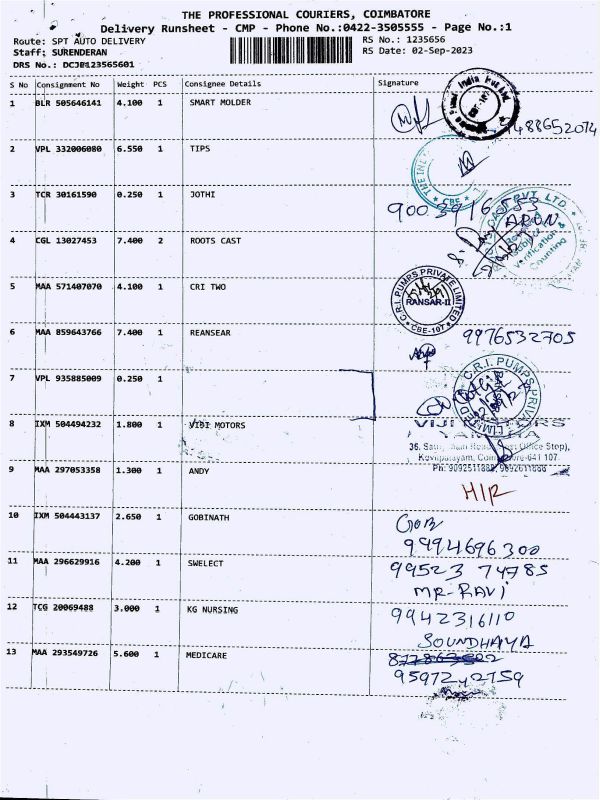 THE PROFESSIONAL COURIERS, COIMBATORE
Delivery Runsheet - CMP - Phone No.:0422-3505555 - Page No.:1
Route: SPT AUTO DELIVERY
RS No.: 1235656
Staff: SURENDERAN
RS Date: 02-Sep-2023
DRS No.: DCJB123565601
S No Consignment No Weight PCS Consignee Details Signature
1 BLR 505646141 4.100 1 SMART MOLDER
9488652074
2 VPL 332006080 6.550 1 TIPS
CBE
3 TCR 30161590 0.250 1 JOTHI
9003916553
ARUN
4 CGL 13027453 7.400 2 ROOTS CAST
Verification &
Counting
5 MAA 571407070 4.100 1 CRI TWO
C.R.I. PUMPS PRIVATE LIMITED
RANSAR-II
CBE-107
6 MAA 859643766 7.400 1 REANSEAR
9976532705
7 VPL 935885009 0.250 1
C.R.I. PUMPS PRIVATE LIMITED
8 IXM 504494232 1.800 1 VIJI MOTORS
VIJI MOTORS
YAMAHA
Kovilpalayam, Coimbatore-641 107.
9 MAA 297053358 1.300 1 ANDY
H/R
10 IXM 504443137 2.650 1 GOBINATH
Gob
9994696300
11 MAA 296629916 4.200 1 SWELECT
99523 74785
MR-RAVI
12 TCG 20069488 3.000 1 KG NURSING
9942316110
SOUNDHAYA
13 MAA 293549726 5.600 1 MEDICARE
9597242759